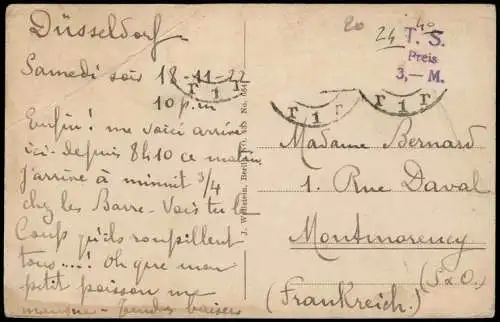 Düsseldorf
Samedi soir 18-11-22
10 p.m
Enfin! me voici arrivé
ici depuis 8h10 ce matin
j'arrive à minuit 3/4
chez les Barre - Vois tu le
Coup qu'ils roupillent
tous....! Oh que mon
petit poisson me
manque - Tendres baisers
J. Wollstein, Berlin
20
24
40
T. S.
Preis
3,— M.
Madame Bernard
1. Rue Daval
Montmorency
(S&O.)
(Frankreich.)